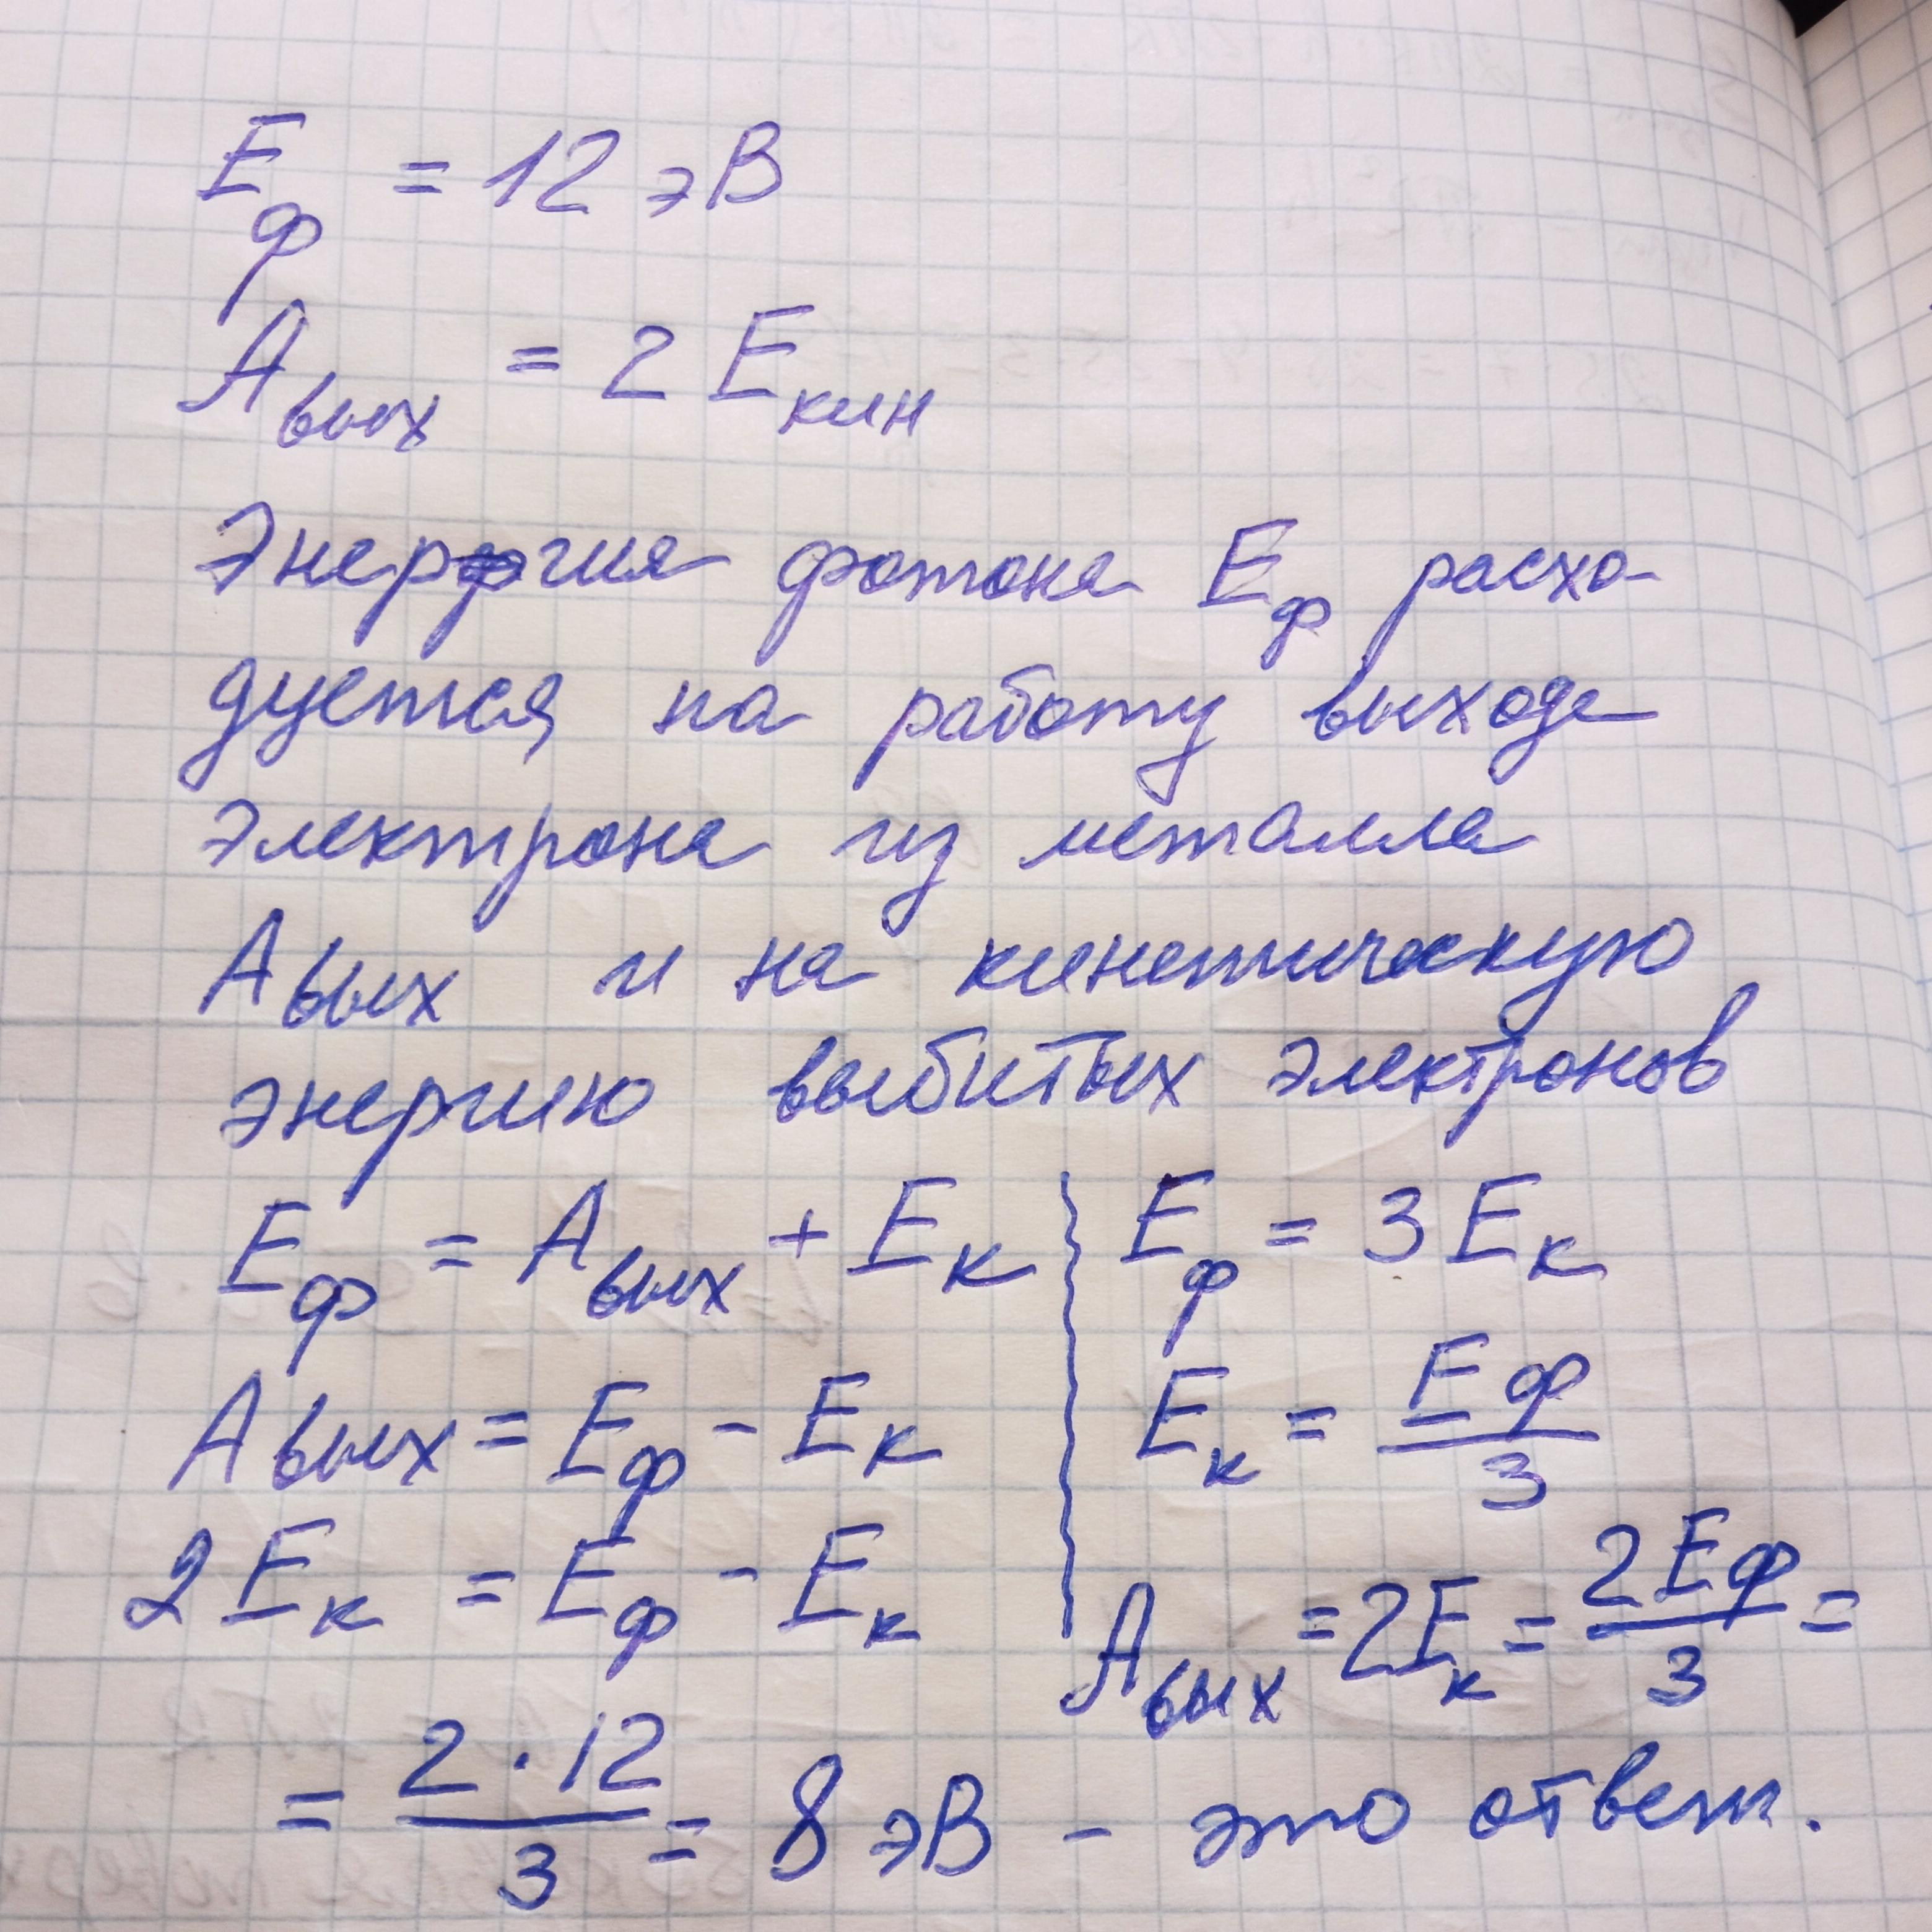 Eф = 12 эВ
Aвых = 2 Eкин
Энергия фотона Eф расхо-
дуется на работу выхода
электрона из металла
Aвых и на кинетическую
энергию выбитых электронов
Eф = Aвых + Eк
Aвых = Eф - Eк
2Eк = Eф - Eк
Eф = 3Eк
Eк = Eф/3
Aвых = 2Eк = 2Eф/3 =
= 2·12/3 = 8 эВ - это ответ.